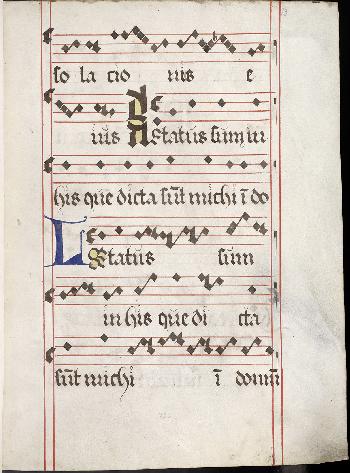 so la cio nis e
ius Letatus sum in
his que dicta sūt michi ī do
Letatus sum
in his que di cta
sūt michi ī domū